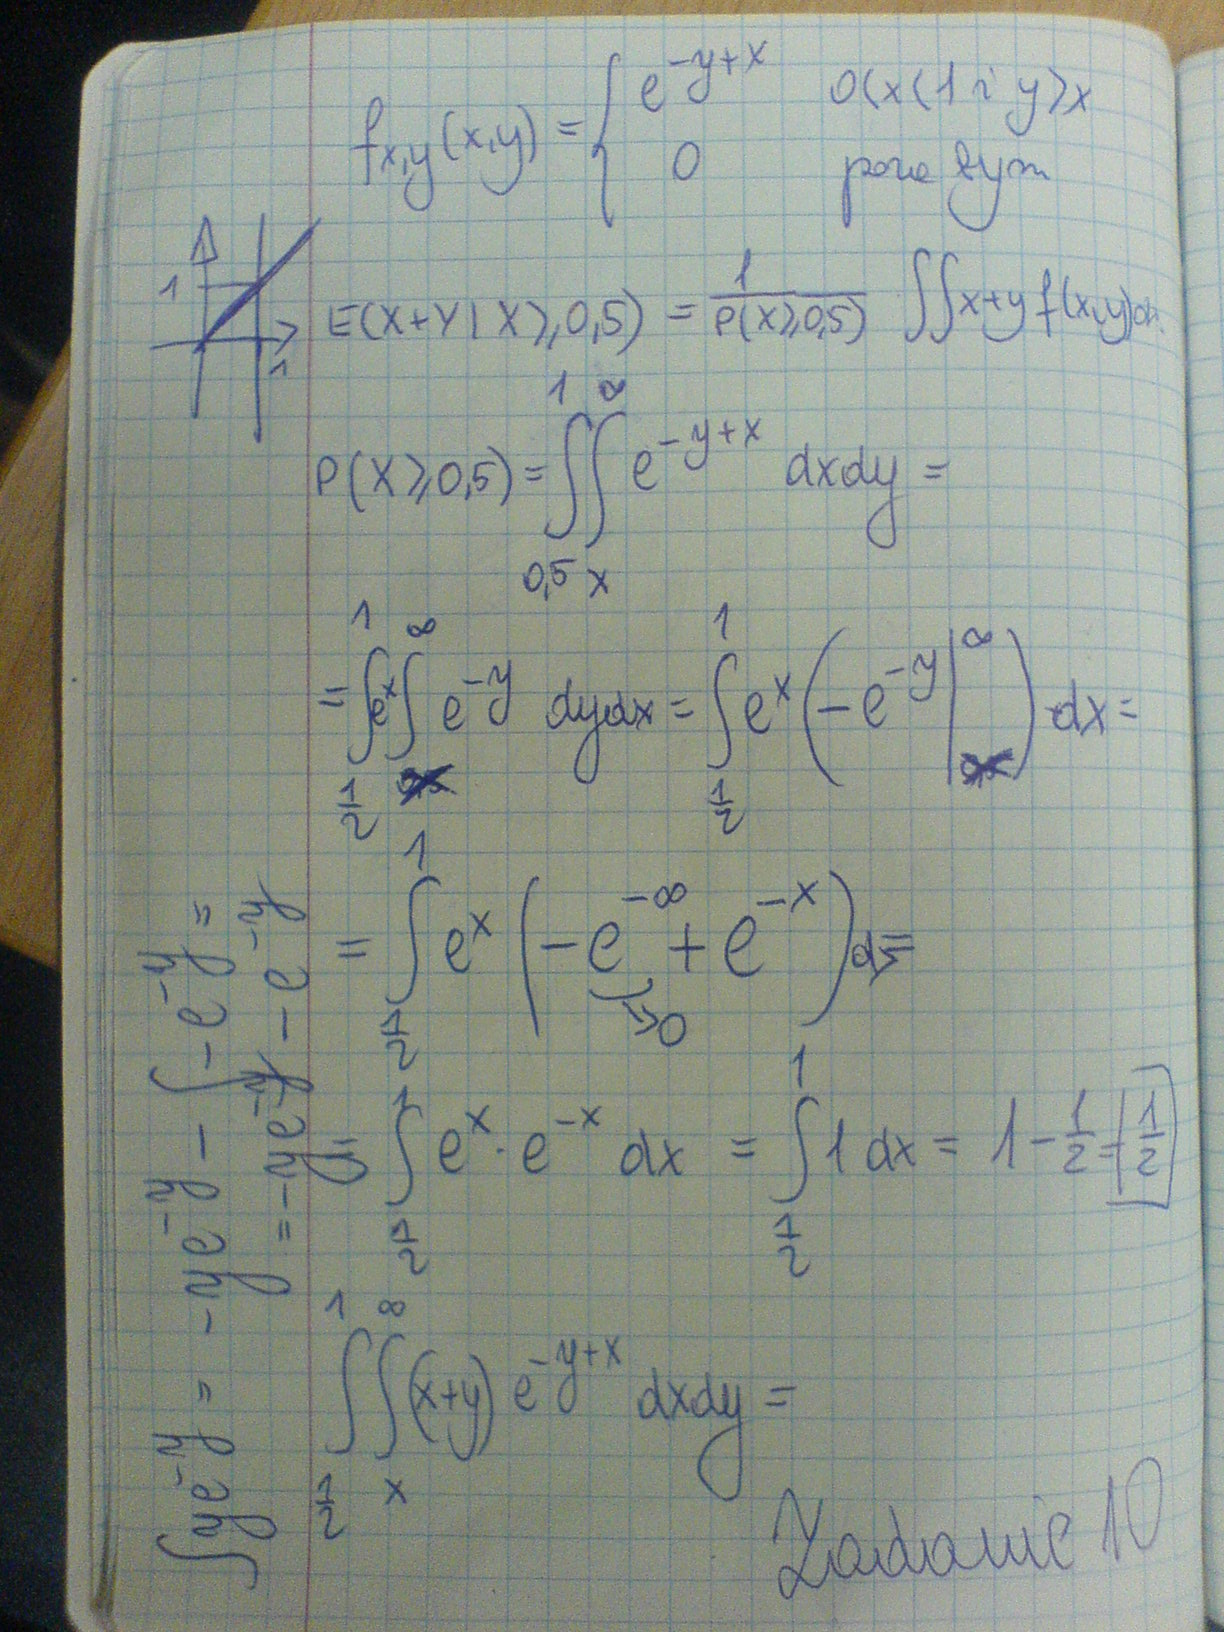 f_{x,y}(x,y) = { e^{-y+x} 0<x<1 i y>x
0 poza tym
1
1
E(X+Y | X≥0,5) = 1/P(X≥0,5) ∬ x+y f(x,y)
P(X≥0,5) = ∫_{0,5}^{1} ∫_{x}^{∞} e^{-y+x} dxdy =
= ∫_{1/2}^{1} e^x ∫^{∞} e^{-y} dydx = ∫_{1/2}^{1} e^x (-e^{-y} |^{∞}) dx =
= ∫_{1/2}^{1} e^x (-e^{-∞} + e^{-x}) d =
→0
= ∫_{1/2}^{1} e^x · e^{-x} dx = ∫_{1/2}^{1} 1 dx = 1 - 1/2 = 1/2
∫_{1/2}^{1} ∫_{x}^{∞} (x+y) e^{-y+x} dxdy =
∫ye^{-y} = -ye^{-y} - ∫ -e^{-y} =
= -ye^{-y} - e^{-y}
Zadanie 10